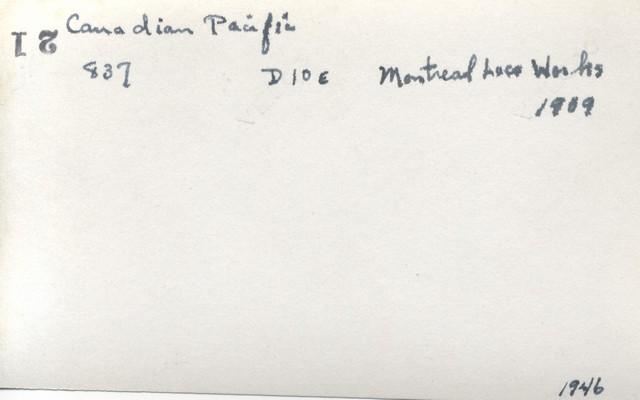 Canadian Pacific
21
837 D10E Montreal Loco Works
1909
1946